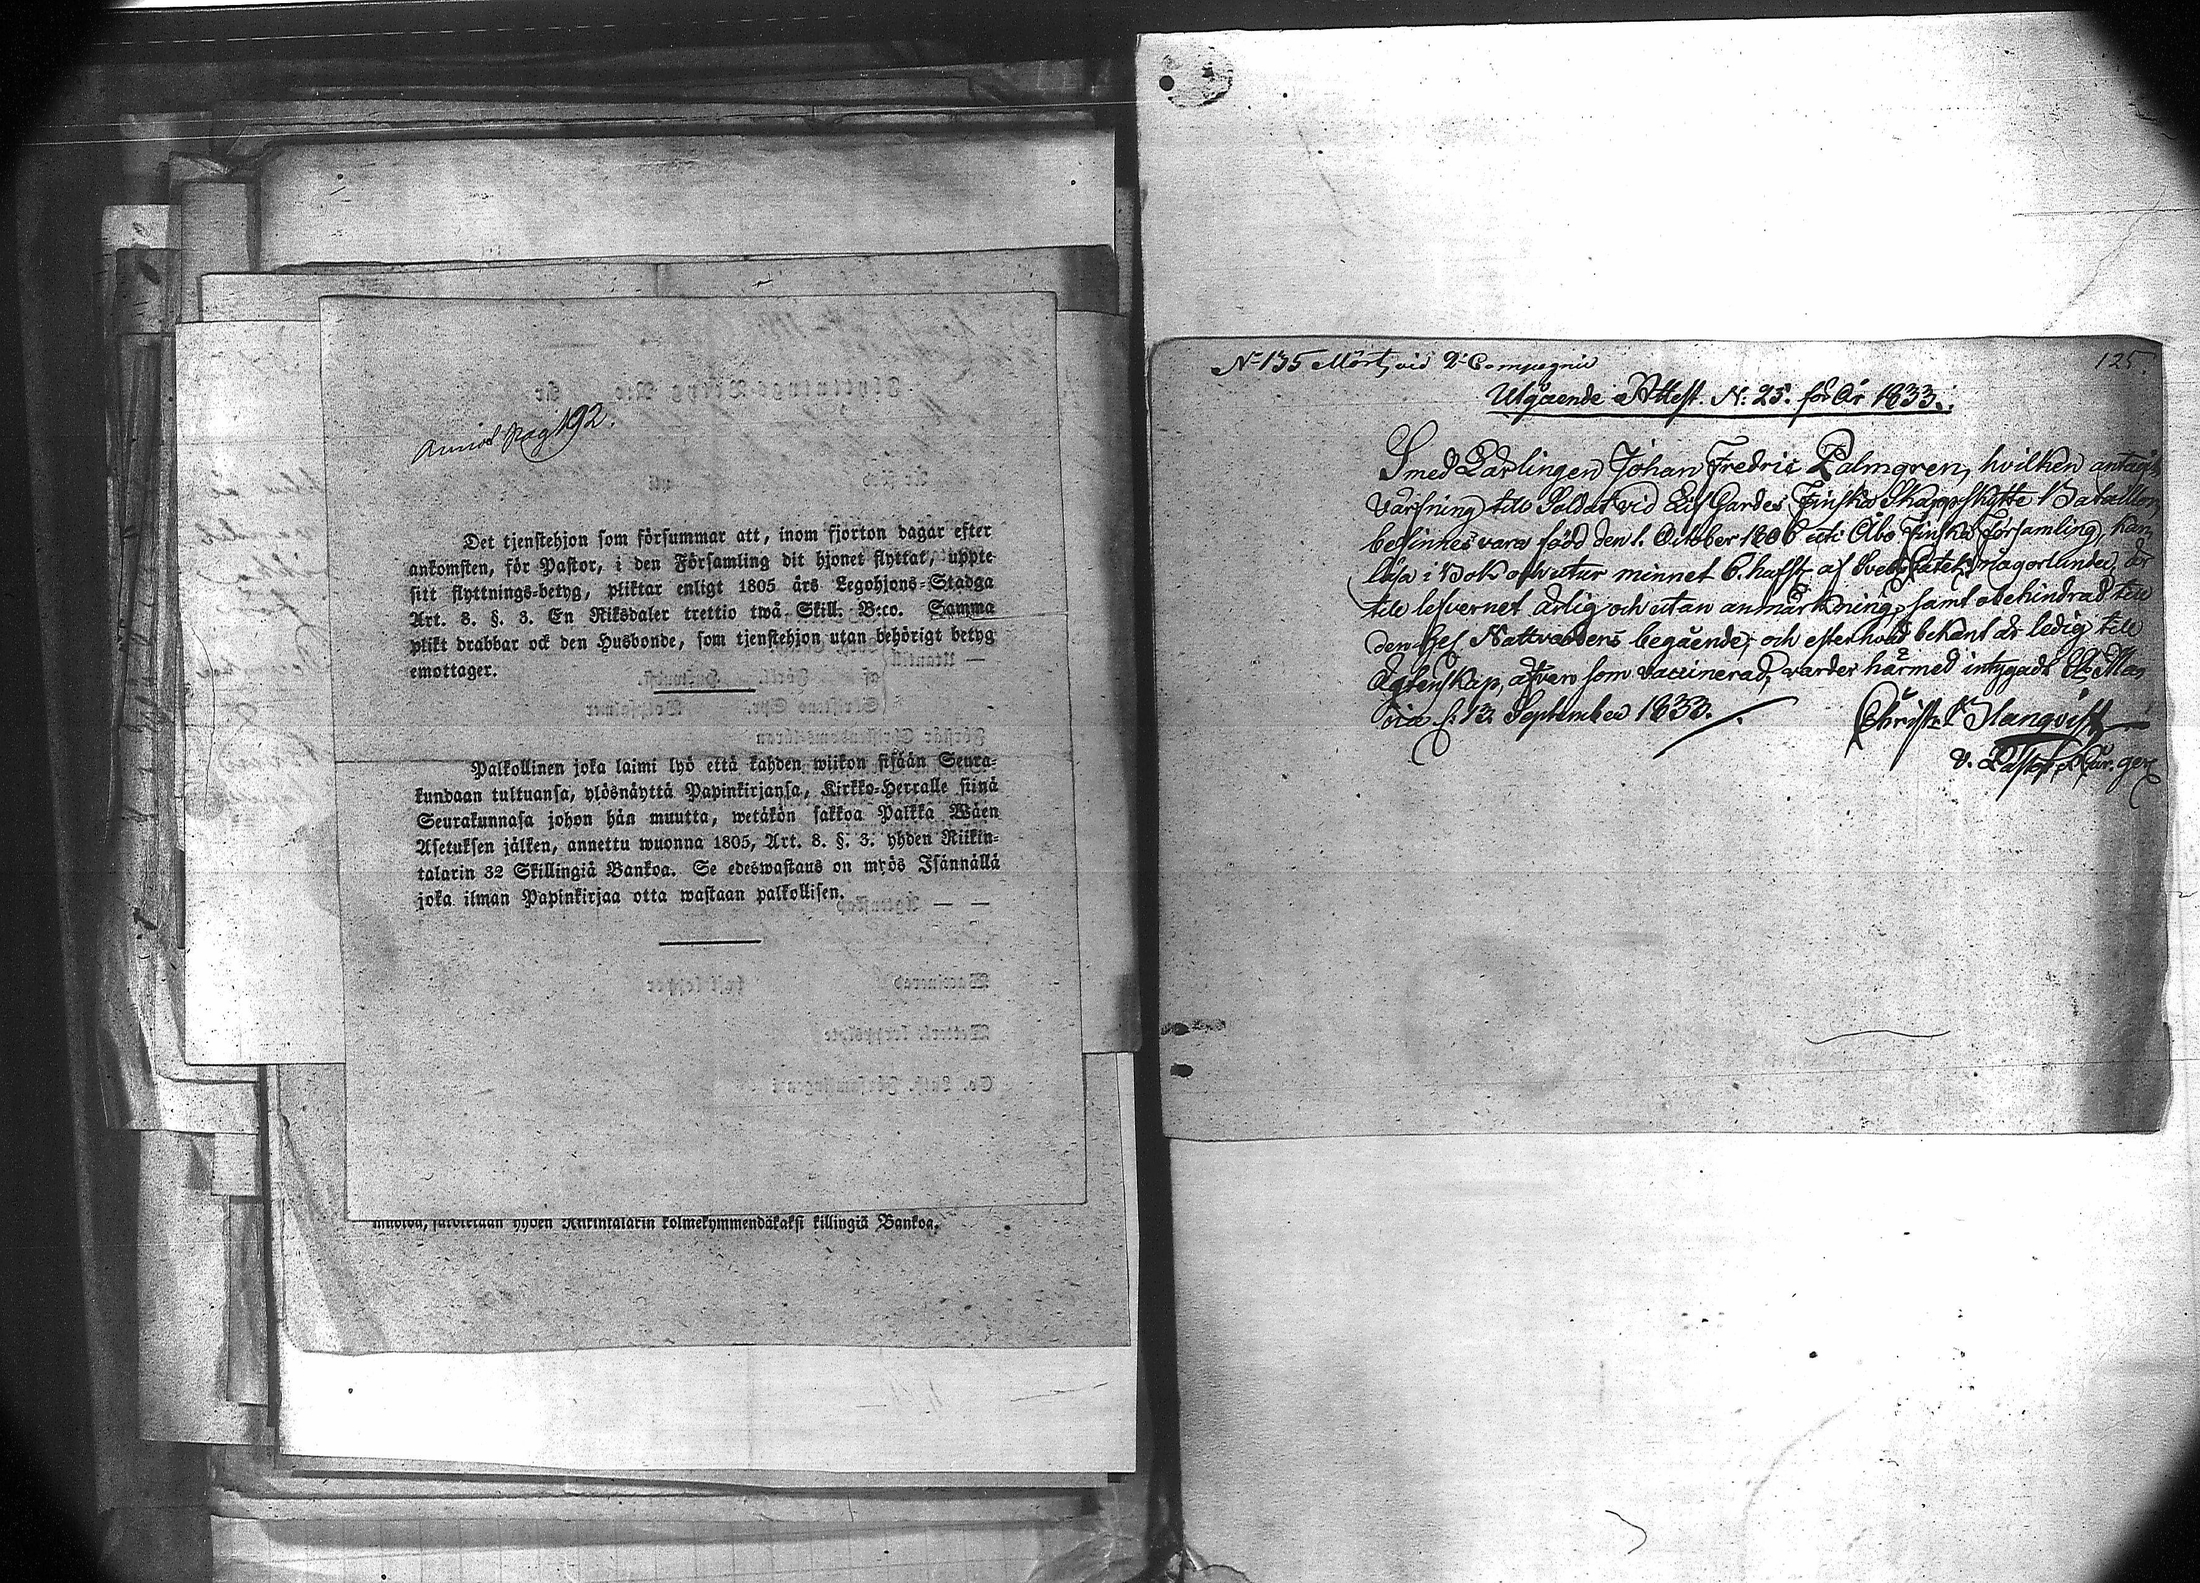 Annot Pag 192.
Det tjenstehjon som försummar att, inom fjorton dagar efter
ankomsten, för Pastor, i den Församling dit hjonet flyttat, uppte
sitt flyttnings-betyg, pliktar enligt 1805 års Legohjons-Stadga
Art. 8. §. 3. En Riksdaler trettio twå Skill. B:co. Samma
plikt drabbar ock den Husbonde, som tjenstehjon utan behörigt betyg
emottager.
Palkollinen joka laimi lyö että kahden wiikon sisään Seura-
kundaan tultuansa, ylösnäyttä Papinkirjansa, Kirkko-Herralle siinä
Seurakunnasa johon hän muutta, wetäkön sakkoa Palkka Wäen
Asetuksen jälken, annettu wuonna 1805, Art. 8. §. 3. yhden Riikin-
talarin 32 Skillingiä Bankoa. Se edeswastaus on myös Isännällä
joka ilman Papinkirjaa otta wastaan palkollisen.
yhden Riikintalarin kolmekymmendäkaksi killingiä Bankoa.
N:135 Mört, vid 2: Compagnie
125.
Utgående Attest N: 25. för År 1833.
Smed Lärlingen Johan Fredric Palmgren, hvilken antagit
värfning till Soldat vid Lif Gardes Finska Skarpskytte Bataillon,
befinnes vara född den 1. October 1806 uti Åbo Finska församling, kan
läsa i Bok och utur minnet 6. hufst. af Svebi Catek: någorlunda, är
till lefvernet ärlig och utan anmärkning, samt obehindrad till
den hel. Nattvardens begående, och efter hvad bekant är ledig till
Ägtenskap, äfven som vaccinerad, varder härmed intygadt St. Mar
d. 13. September 1833.
Christ.
v. Pastor